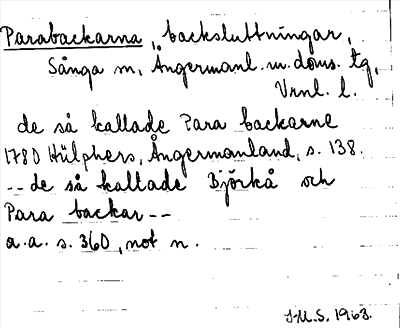 Parabackarna, backsluttningar,
Sånga sn, Ångermanl. m. doms. tg,
Vrnl. l.
de så kallade Para backarne
1780 Hülphers, Ångermanland, s. 138.
-- de så kallade Björkå och
Para backar --
a.a. s. 360, not n.
J.M.S. 1963.